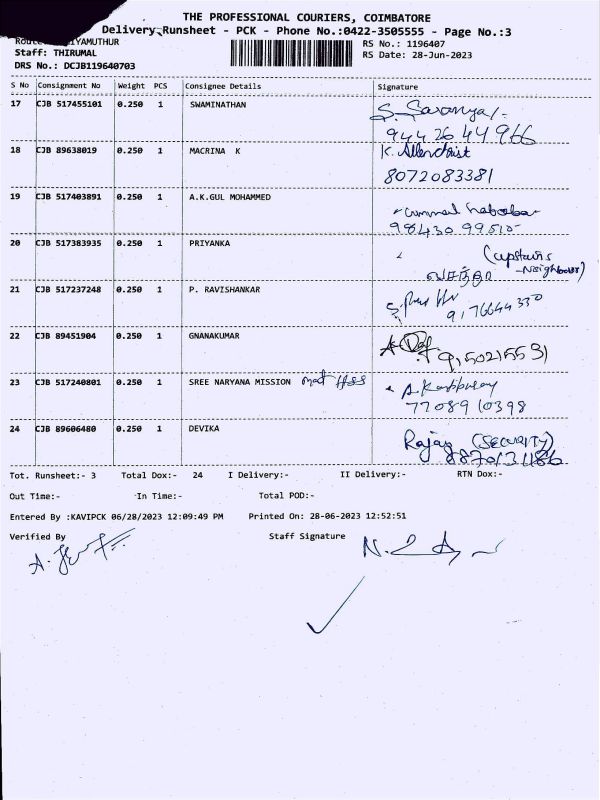 THE PROFESSIONAL COURIERS, COIMBATORE
Delivery Runsheet - PCK - Phone No.:0422-3505555 - Page No.:3
YAMUTHUR
RS No.: 1196407
Staff: THIRUMAL
RS Date: 28-Jun-2023
DRS No.: DCJB119640703
S No Consignment No Weight PCS Consignee Details Signature
17 CJB 517455101 0.250 1 SWAMINATHAN S. Saranya
9442644966
18 CJB 89638019 0.250 1 MACRINA K K. Allenchrist
8072083381
19 CJB 517403891 0.250 1 A.K.GUL MOHAMMED
98430 99510
20 CJB 517383935 0.250 1 PRIYANKA (upstairs
வசந்தா -Neighbour)
21 CJB 517237248 0.250 1 P. RAVISHANKAR
9176644330
22 CJB 89451904 0.250 1 GNANAKUMAR
9150215531
23 CJB 517240801 0.250 1 SREE NARYANA MISSION mat HSS
7708910398
24 CJB 89606480 0.250 1 DEVIKA Rajag (SECURITY)
8870131186
Tot. Runsheet:- 3 Total Dox:- 24 I Delivery:- II Delivery:- RTN Dox:-
Out Time:- In Time:- Total POD:-
Entered By :KAVIPCK 06/28/2023 12:09:49 PM Printed On: 28-06-2023 12:52:51
Verified By Staff Signature